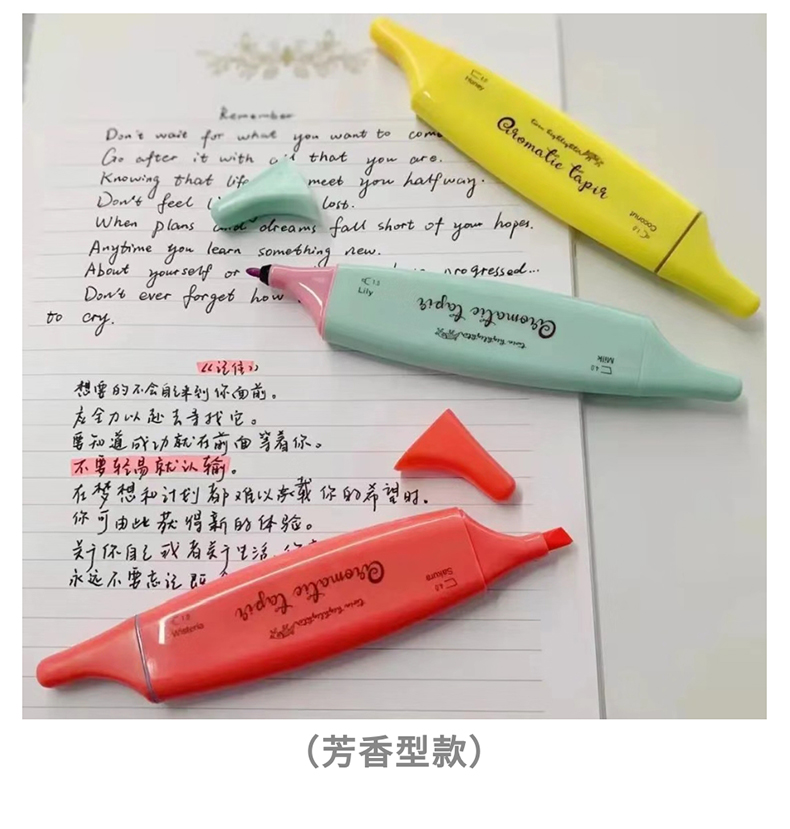 Remember
Don't wait for what you want to come
Go after it with all that you are.
Knowing that life meet you halfway.
Don't feel lost.
When plans and dreams fall short of your hopes.
Anytime you learn something new.
About yourself or progressed...
Don't ever forget how
to cry.
《记住》
想要的不会自己来到你面前。
应全力以赴去寻找它。
要知道成功就在前面等着你。
不要轻易就认输。
在梦想和计划都难以承载你的希望时。
你可由此获得新的体验。
关于你自己或者关于生活
永远不要忘记
1.0
Honey
Twin highlighter
Aromatic tapir
1.0
Coconut
1.0
Lily
Twin highlighter
Aromatic tapir
4.0
Milk
4.0
Sakura
Twin highlighter
Aromatic tapir
1.0
Wisteria
（芳香型款）